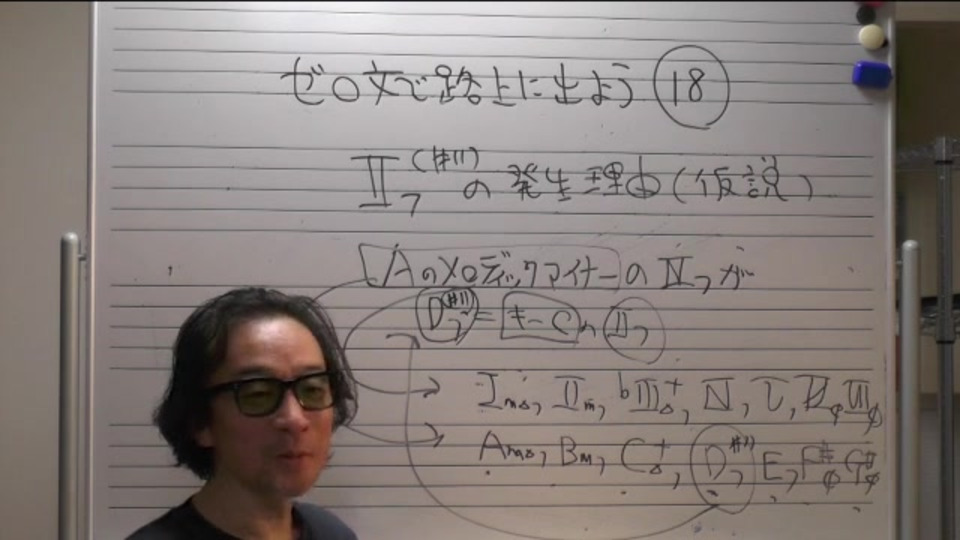 ゼロ文で路上に出よう ⑱
Ⅱ7(#11)の発生理由(仮説)
Aのメロディックマイナーの Ⅳ7が
D7(#11) = キーCの Ⅱ7
ImΔ, Ⅱm, bⅢΔ+, Ⅳ, Ⅴ, Ⅵø Ⅶø
AmΔ, Bm, CΔ+, D7#11, E, F#ø G#ø